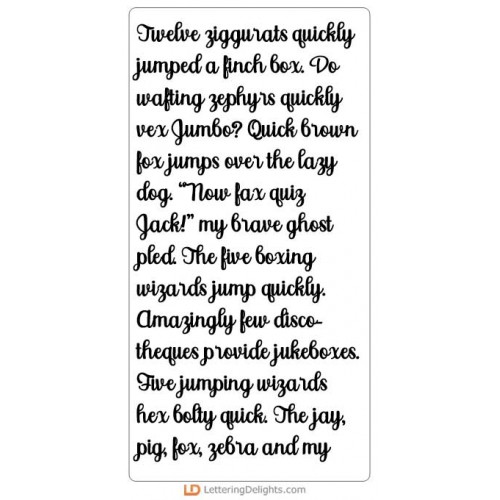 Twelve ziggurats quickly
jumped a finch box. Do
wafting zephyrs quickly
vex Jumbo? Quick brown
fox jumps over the lazy
dog. "Now fax quiz
Jack!" my brave ghost
pled. The five boxing
wizards jump quickly.
Amazingly few disco-
theques provide jukeboxes.
Five jumping wizards
hex bolty quick. The jay,
pig, fox, zebra and my
LD LetteringDelights.com